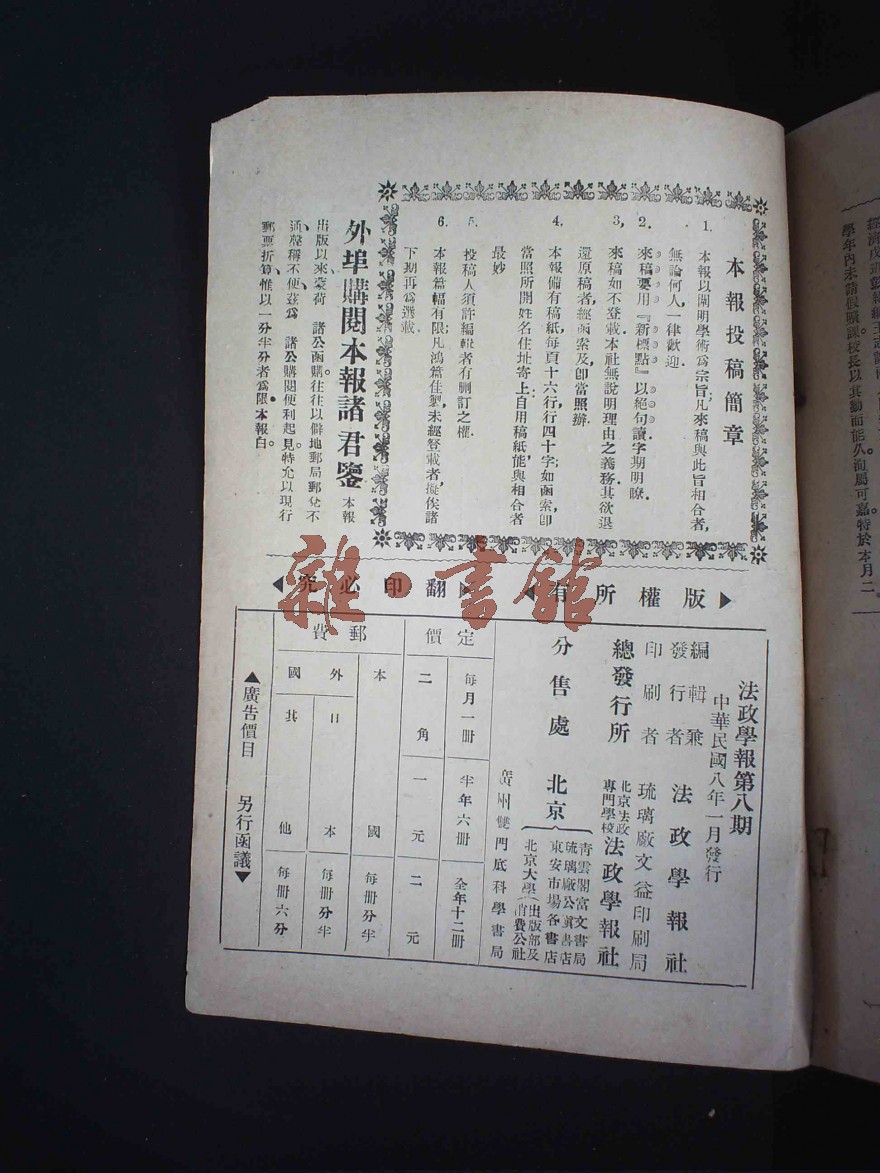 本報投稿簡章
1. 本報以闡明學術爲宗旨凡來稿與此旨相合者,
無論何人一律歡迎.
2. 來稿要用『新標點』以絕句讀字期明瞭.
3, 來稿如不登載.本社無說明理由之義務其欲退
還原稿者,經函索及卽當照辦.
4. 本報備有稿紙每頁十六行行四十字;如函索,卽
當照所開姓名住址寄上;自用稿紙能與相合者
最妙
5. 投稿人須許編輯者有刪訂之權.
6. 本報篇幅有限凡鴻篇佳製,未經登載者,擬俟諸
下期再爲選載
外埠購閱本報諸君鑒 本報
出版以來、蒙荷 諸公函購往往以僻地郵局郵兌不
通、殊稱不便、茲爲 諸公購閱便利起見特允以現行
郵票折算、惟以一分半分者爲限、本報白。
版權所有
翻印必究
法政學報第八期
中華民國八年一月發行
編輯兼
發行者 法政學報社
印刷者 琉璃廠文益印刷局
總發行所 北京法政專門學校 法政學報社
分售處 北京
青雲閣富文書局
琉璃廠公眞書店
東安市場各書店
北京大學(出版部及
消費公社
廣州雙門底科學書局
定價
每月一冊 半年六冊 全年十二冊
二角 一元 二元
郵費
本國 每冊分半
外國
日本 每冊分半
其他 每冊六分
▲廣告價目 另行函議▼
學年內未請假曠課校長以其勤而能久洵屬可嘉特於本月二
雜·書館